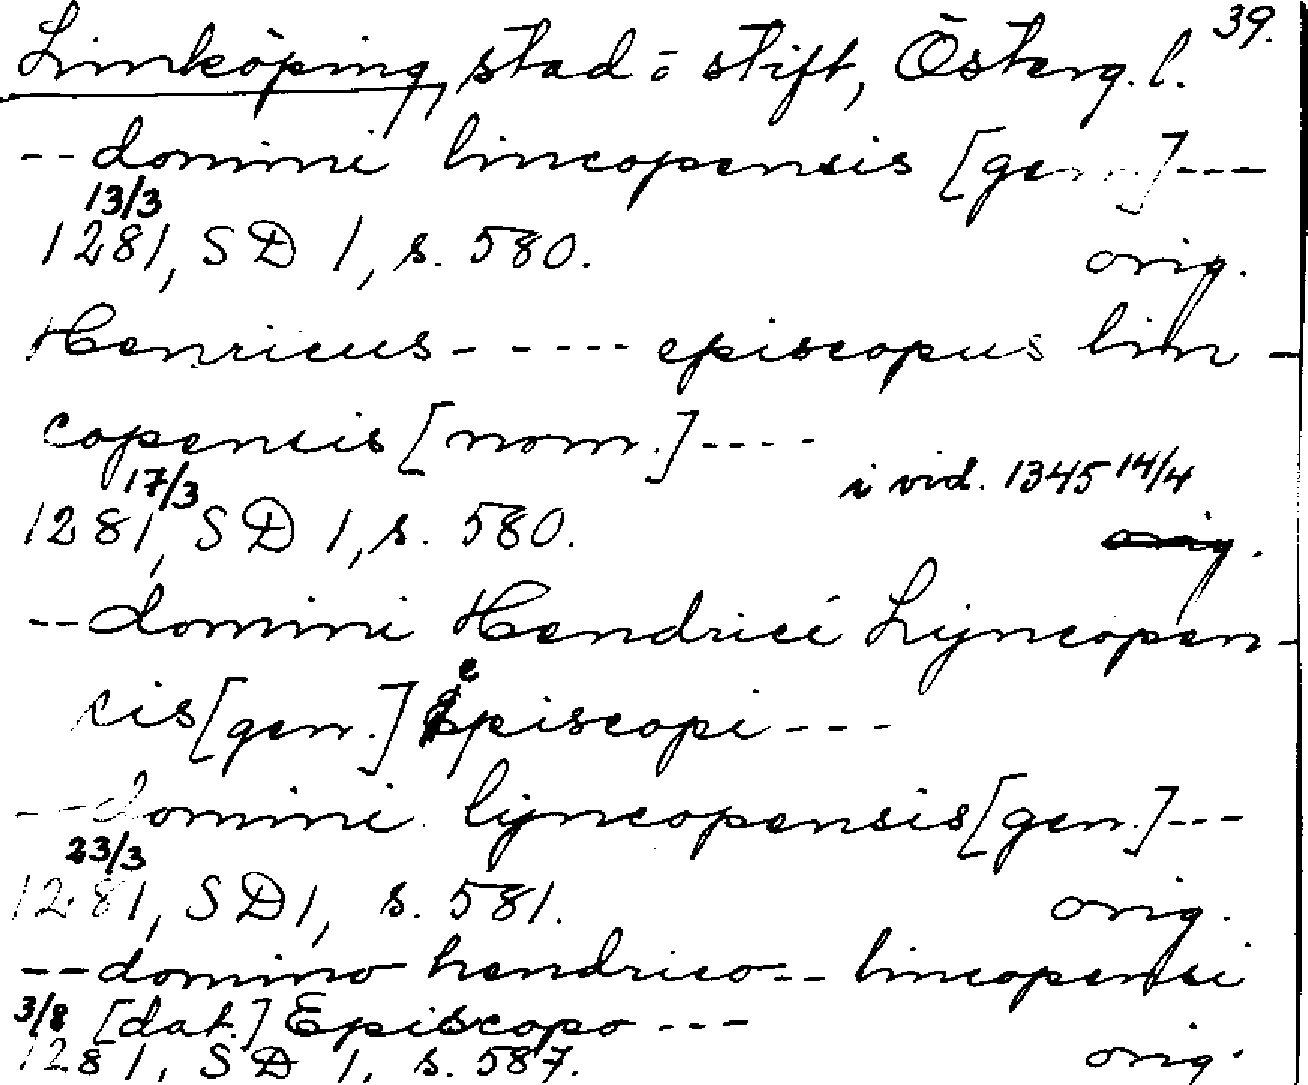 39.
Linköping, stad o stift, Österg. l.
-- domini lincopensis [gen.] ---
13/3
1281, SD 1, s. 580. orig.
Henricus ----- episcopus lin-
copensis [nom.] ----
17/3 i vid. 1345 14/4
1281, SD 1, s. 580. orig.
-- domini Hendrici Lyncopen-
cis [gen.] episcopi ---
-- domini lyncopensis [gen.] ---
23/3
1281, SD 1, s. 581. orig.
-- domino hendrico -- lincopensi
3/8 [dat.] Episcopo ---
1281, SD 1, s. 587. orig.